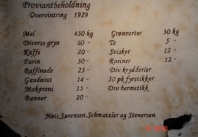 Proviantbeholdning
Overvintring 1929
Mel 450 kg
Diverse gryn 60 -
Kaffe 20 -
Farin 50 -
Raffinade 25 -
Gaudaost 14 -
Makaroni 15 -
Bønner 20 -
Grønnerter 30 kg
Te 5 -
Svisker 12 -
Rosiner 12 -
Div krydderier
50 pk fyrstikker
Div hermetikk
Nøis, Sørensen, Schmutzler og Stenersen